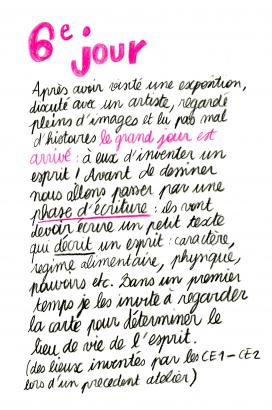 6e jour
Après avoir visité une exposition,
discuté avec un artiste, regardé
pleins d'images et lu pas mal
d'histoires le grand jour est
arrivé : à eux d'inventer un
esprit ! Avant de dessiner
nous allons passer par une
phase d'écriture : ils vont
devoir écrire un petit texte
qui décrit un esprit : caractère,
regime alimentaire, physique,
pouvoirs etc. Dans un premier
temps je les invite à regarder
la carte pour déterminer le
lieu de vie de l'esprit.
(des lieux inventés par les CE1-CE2
lors d'un precedent atelier)